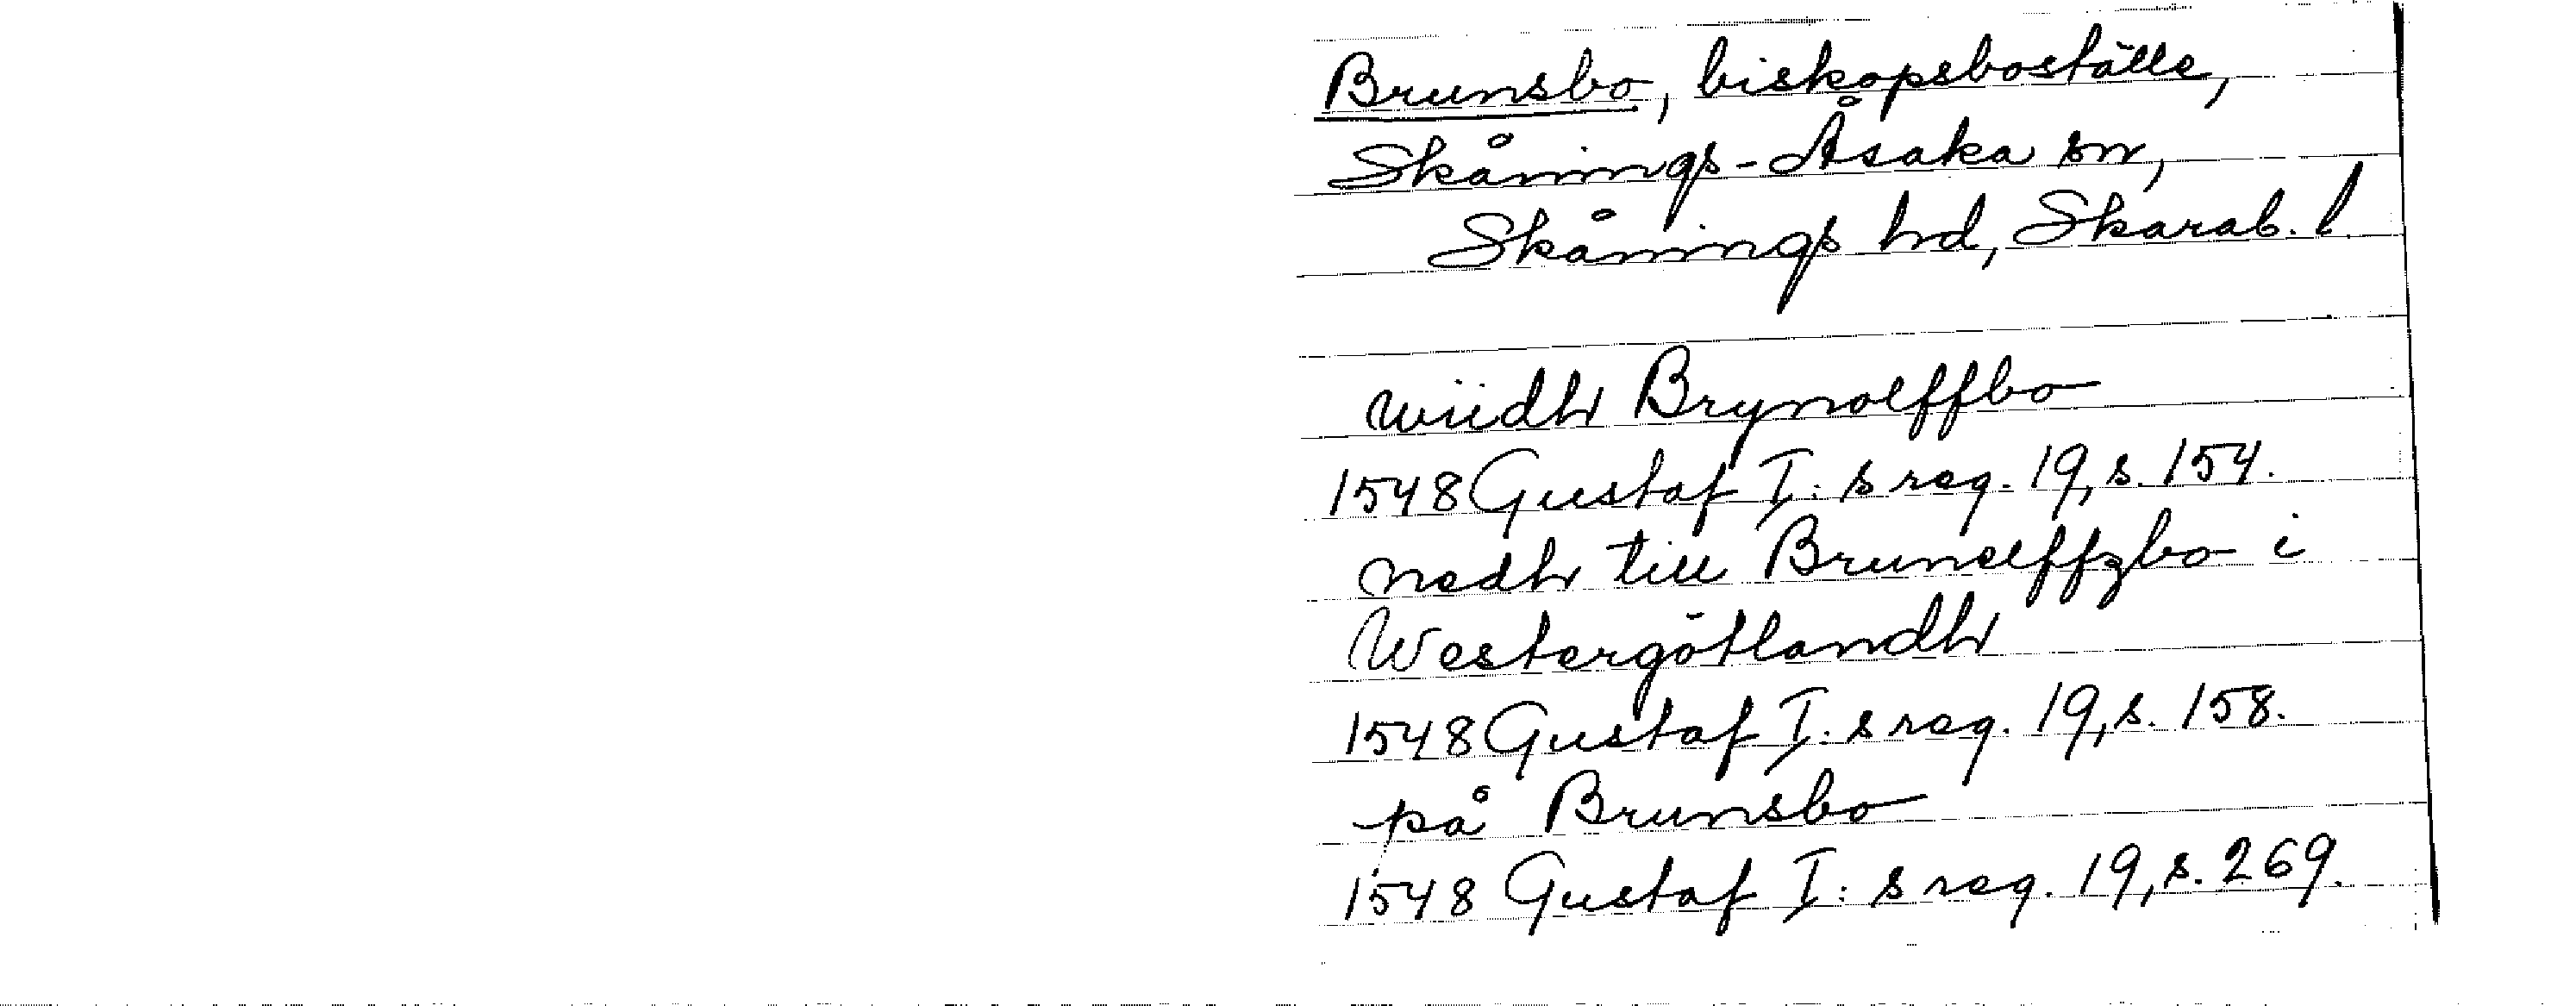 Brunsbo, biskopsboställe,
Skånings-Åsaka sn,
Skånings hd, Skarab. l.
wiidh Brynolffbo
1548 Gustaf I:s reg. 19, s. 154.
nedh till Brunelffzbo i
Westergötlandh
1548 Gustaf I:s reg. 19, s. 158.
på Brunsbo
1548 Gustaf I:s reg. 19, s. 269.